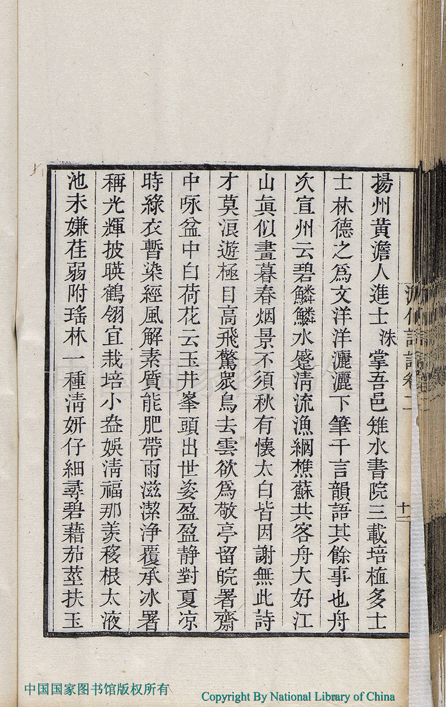 揚州黃澹人進士洙掌吾邑雉水書院三載培植多士
士林德之為文洋洋灑灑下筆千言韻語其餘事也舟
次宣州云碧鱗鱗水蹙淸流漁網樵蘇共客舟大好江
山眞似畫暮春烟景不須秋有懷太白皆因謝無此詩
才莫浪遊極目高飛驚眾鳥去雲欲為敬亭留皖署齋
中咏盆中白荷花云玉井峯頭出世姿盈盈靜對夏凉
時綠衣暫染經風解素質能肥帶雨滋潔淨覆承冰署
稱光輝披暎鶴翎宜栽培小盎娛淸福那羡移根太液
池未嫌荏弱附瑤林一種淸妍仔細尋碧藕茄莖扶玉
詩話卷二
十二
中国国家图书馆版权所有
Copyright By National Library of China